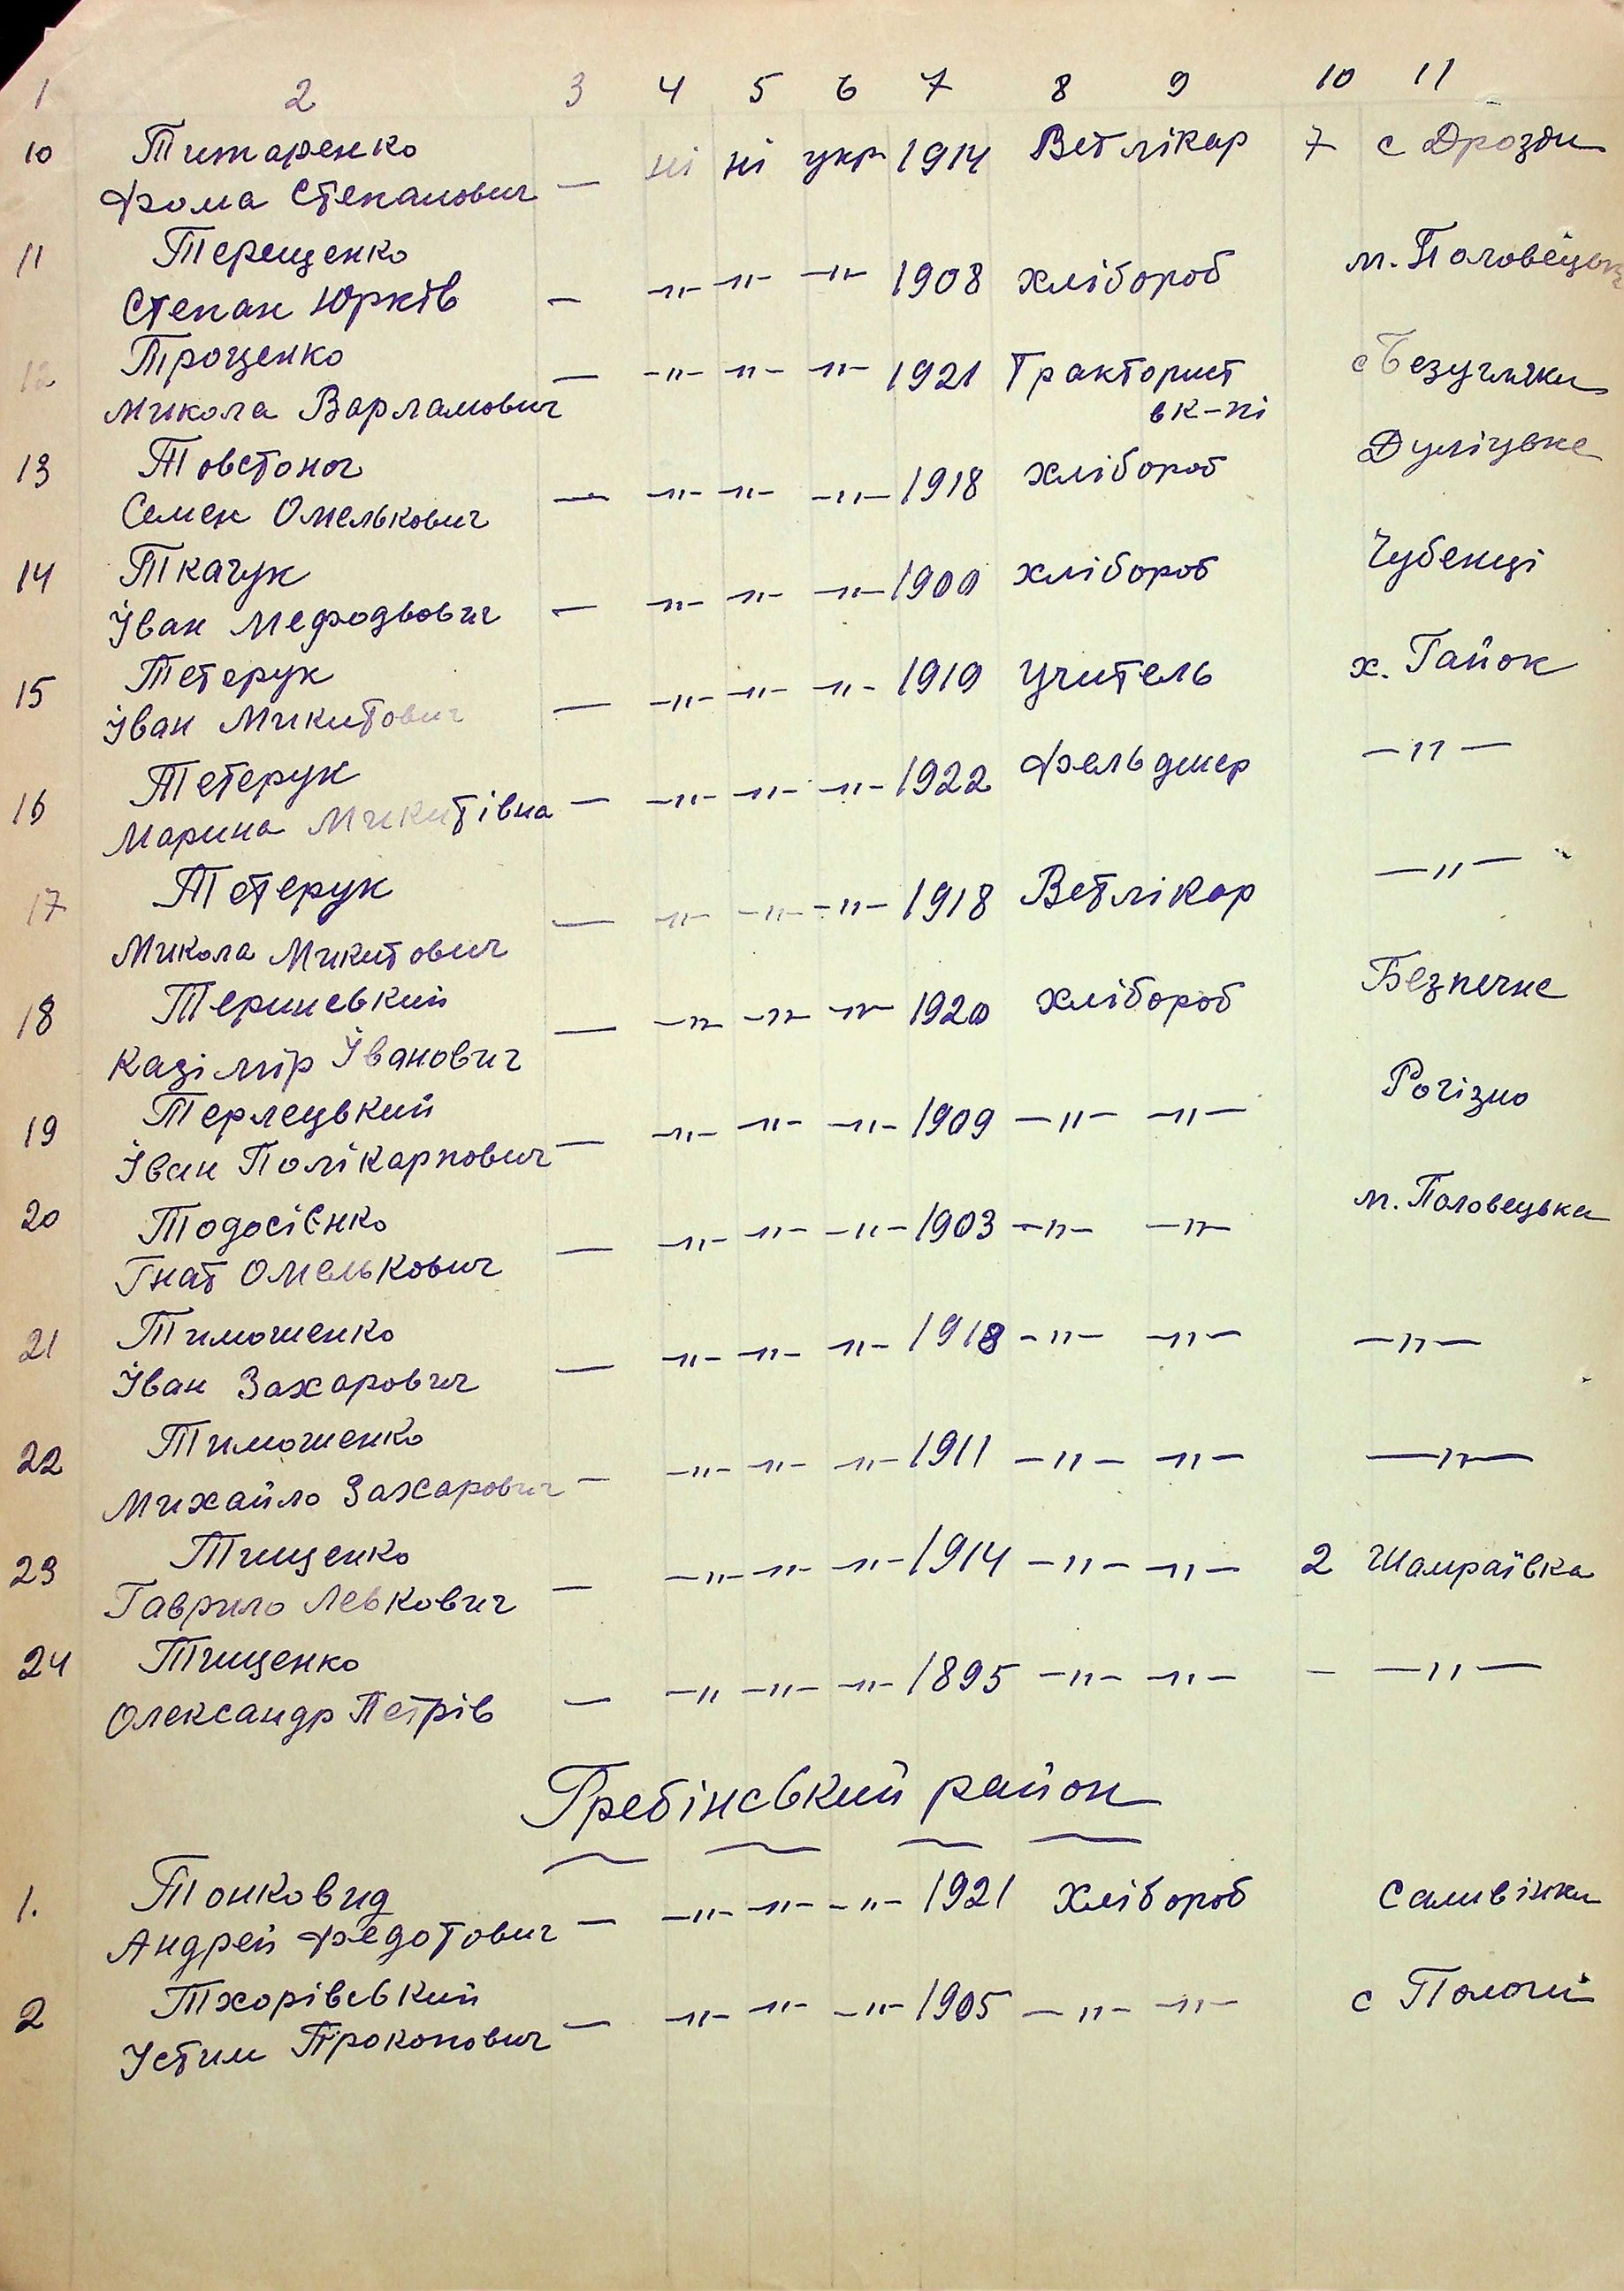 1 2 3 4 5 6 7 8 9 10 11
10 Титаренко ні ні укр 1914 Ветлікар 7 с Дрозди
Фома Степанович —
11 Терещенко м. Половецьк
Степан Юрків — —"— —"— —"— 1908 хлібороб
12 Троценко — —"— —"— —"— 1921 Тракторист с Безугляки
Микола Варламович вк-пі
13 Товстоног Дуліцьке
Семен Омелькович — —"— —"— —"— 1918 хлібороб
14 Ткачук Чубенці
Іван Мефодьович — —"— —"— —"— 1900 хлібороб
15 Тетерук 1919 Учитель х. Гайок
Іван Микитович — —"— —"— —"—
16 Тетерук —"—
Марина Микитівна — —"— —"— —"— 1922 Фельдшер
17 Тетерук — —"— —"— —"— 1918 Ветлікар —"—
Микола Микитович
18 Теринський — —"— —"— —"— 1920 хлібороб Безпечне
Казімір Іванович
19 Терлецький — —"— —"— —"— 1909 —"— —"— Рогізно
Іван Полікарпович
20 Тодосієнко — —"— —"— —"— 1903 —"— —"— м. Половецька
Гнат Омелькович
21 Тимошенко — —"— —"— —"— 1918 —"— —"— —"—
Іван Захарович
22 Тимошенко — —"— —"— —"— 1911 —"— —"— —"—
Михайло Захарович
23 Тищенко — —"— —"— —"— 1914 —"— —"— 2 Шамраївка
Гаврило Левкович
24 Тищенко — —"— —"— —"— 1895 —"— —"— — —"—
Олександр Петрів
Гребінський район
1. Тонковид — —"— —"— —"— 1921 Хлібороб Саливінки
Андрей Федотович
2 Тхорівський — —"— —"— —"— 1905 —"— —"— с Пологи
Устим Прокопович